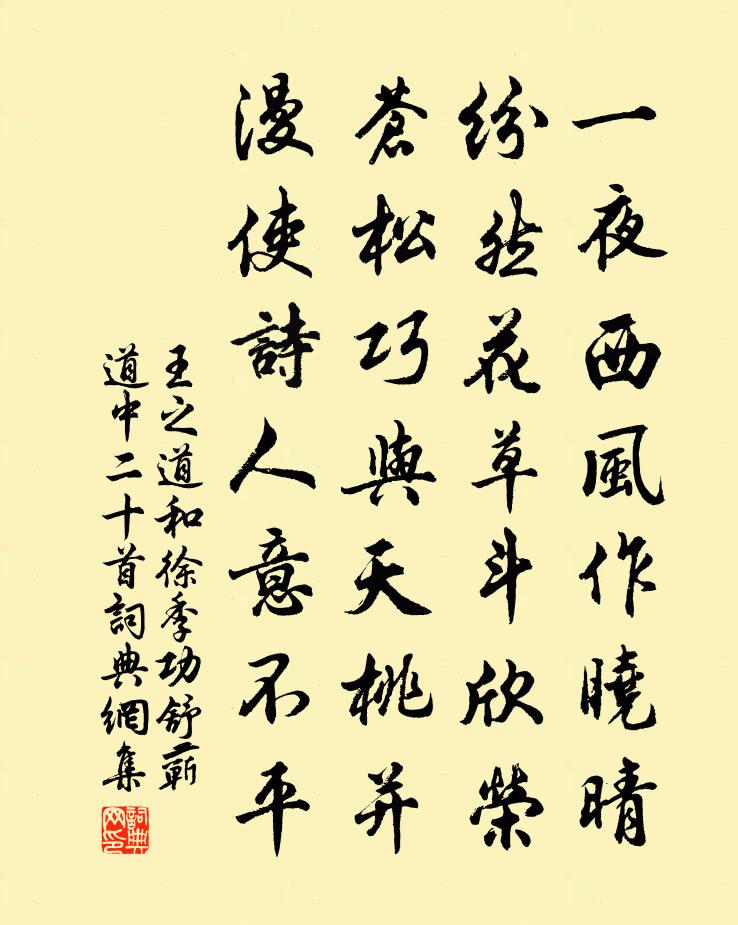 一夜西風作曉晴
紛然花草斗欣榮
蒼松巧與天桃并
漫使詩人意不平
王之道和徐季功舒蘄
道中二十首詞典網集
詞典網印